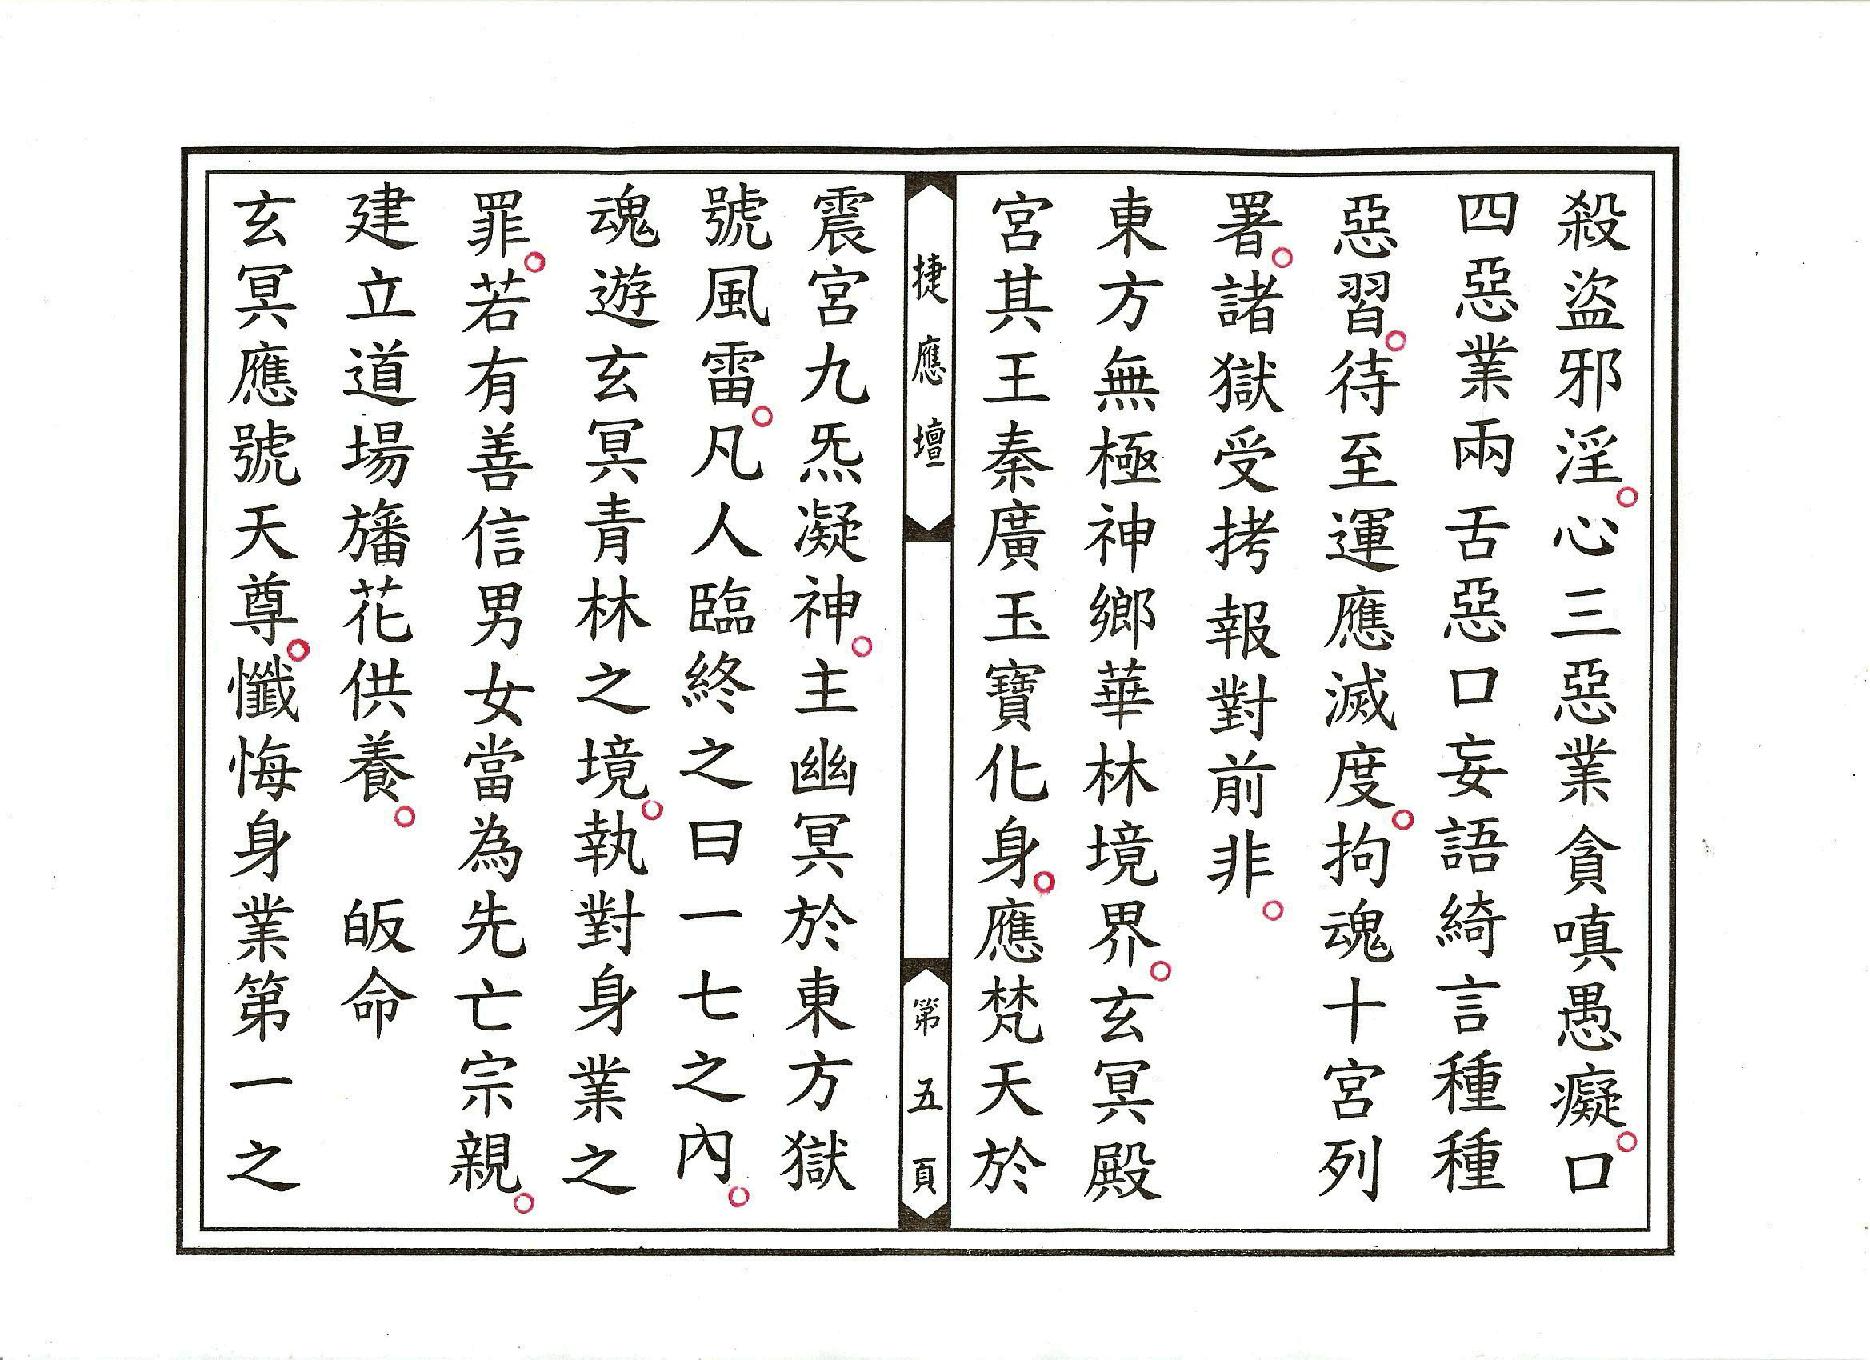 殺盜邪淫。心三惡業貪嗔愚癡。口
四惡業兩舌惡口妄語綺言種種
惡習。待至運應滅度。拘魂十宮列
署。諸獄受拷報對前非。
東方無極神鄉華林境界。玄冥殿
宮其王秦廣玉寶化身。應梵天於
捷應壇
第五頁
震宮九炁凝神。主幽冥於東方獄
號風雷。凡人臨終之曰一七之內。
魂遊玄冥青林之境。執對身業之
罪。若有善信男女當為先亡宗親。
建立道場旛花供養。 皈命
玄冥應號天尊。懺悔身業第一之